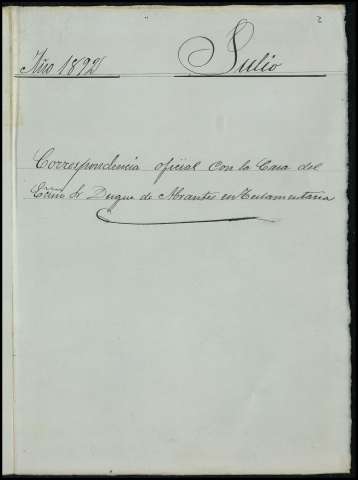 2
Año 1892 Julio
Correspondencia oficial con la Casa del
Exmo Sr Duque de Abrantes en Testamentaria